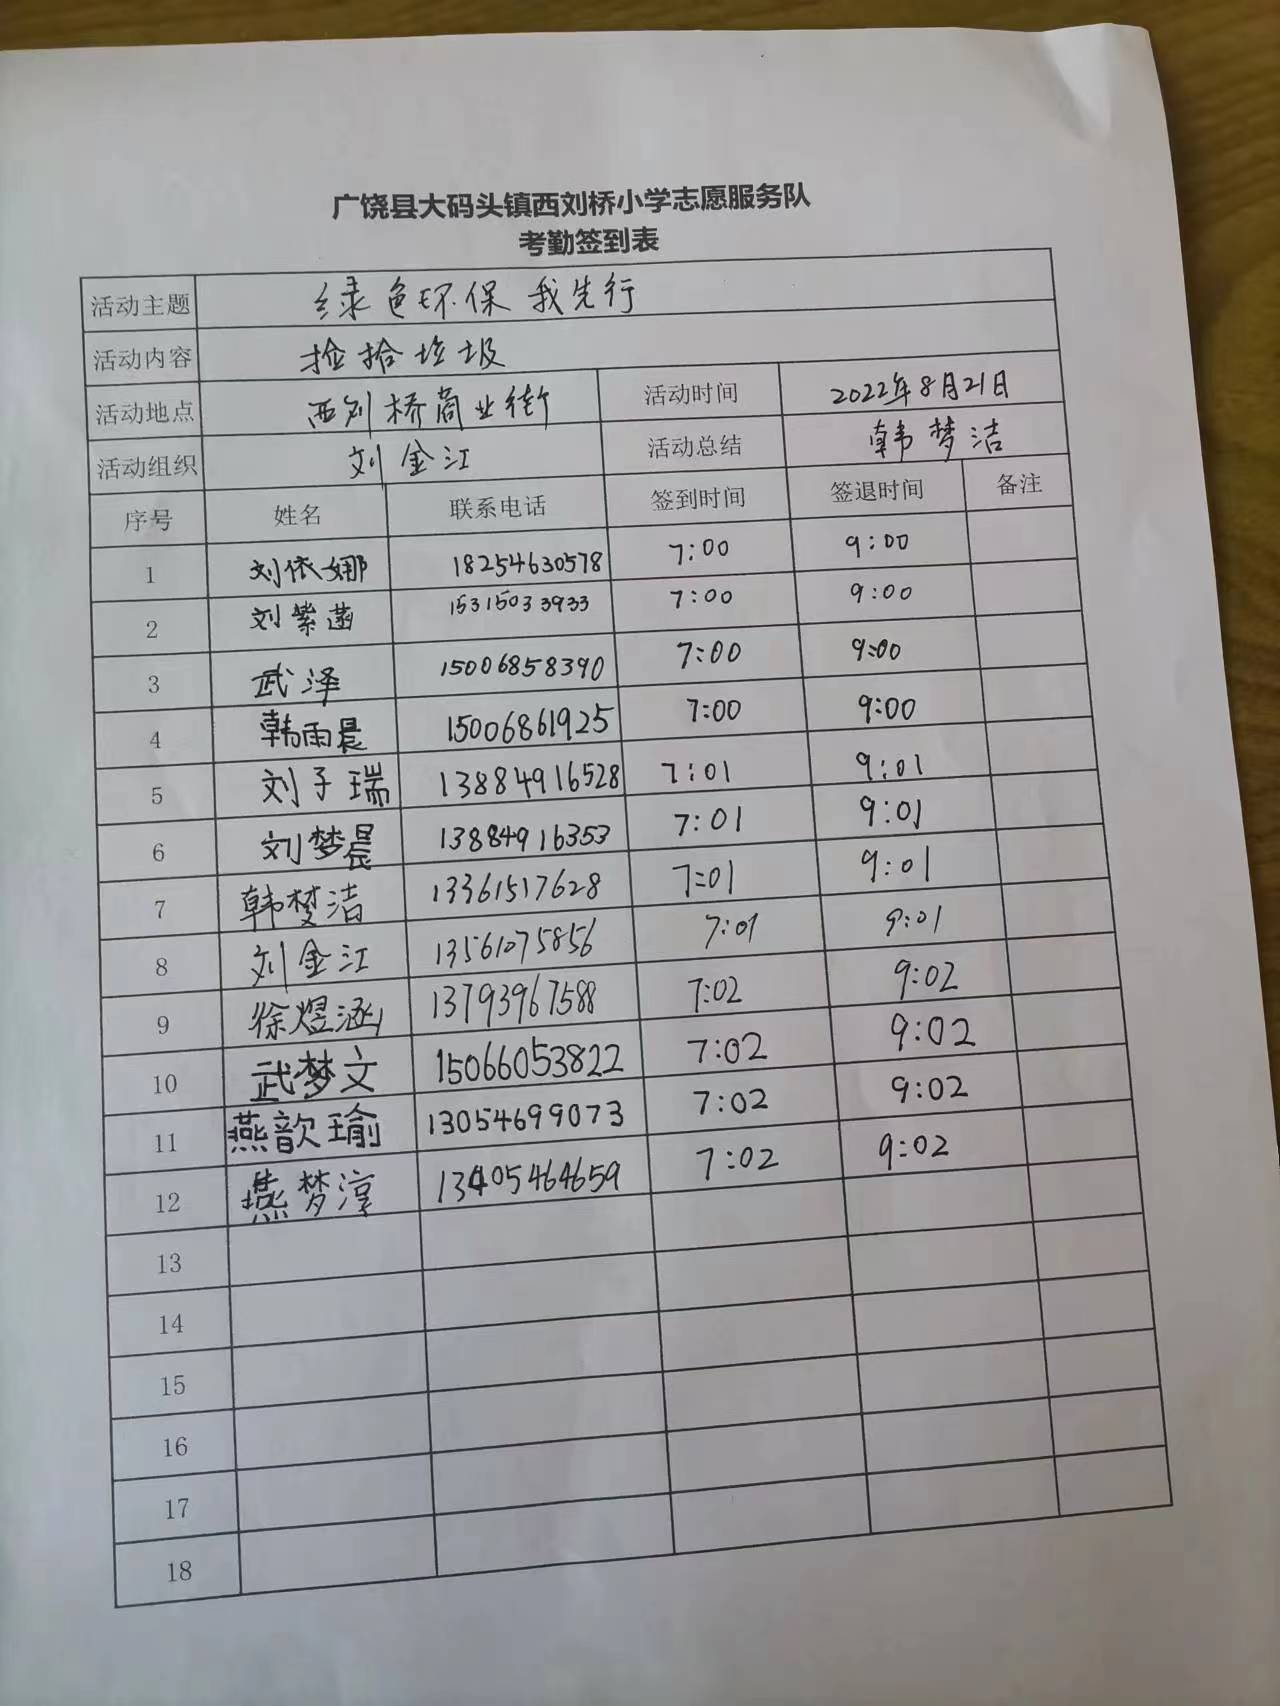 广饶县大码头镇西刘桥小学志愿服务队
考勤签到表
活动主题 绿色环保我先行
活动内容 捡拾垃圾
活动地点 西刘桥商业街 活动时间 2022年8月21日
活动组织 刘金江 活动总结 韩梦洁
序号 姓名 联系电话 签到时间 签退时间 备注
1 刘依娜 18254630578 7:00 9:00
2 刘紫菡 15315033933 7:00 9:00
3 武泽 15006858390 7:00 9:00
4 韩雨晨 15006861925 7:00 9:00
5 刘子瑞 13884916528 7:01 9:01
6 刘梦晨 13884916353 7:01 9:01
7 韩梦洁 13361517628 7:01 9:01
8 刘金江 13561075856 7:01 9:01
9 徐煜涵 13793967588 7:02 9:02
10 武梦文 15066053822 7:02 9:02
11 燕歆瑜 13054699073 7:02 9:02
12 燕梦淳 13405464659 7:02 9:02
13
14
15
16
17
18